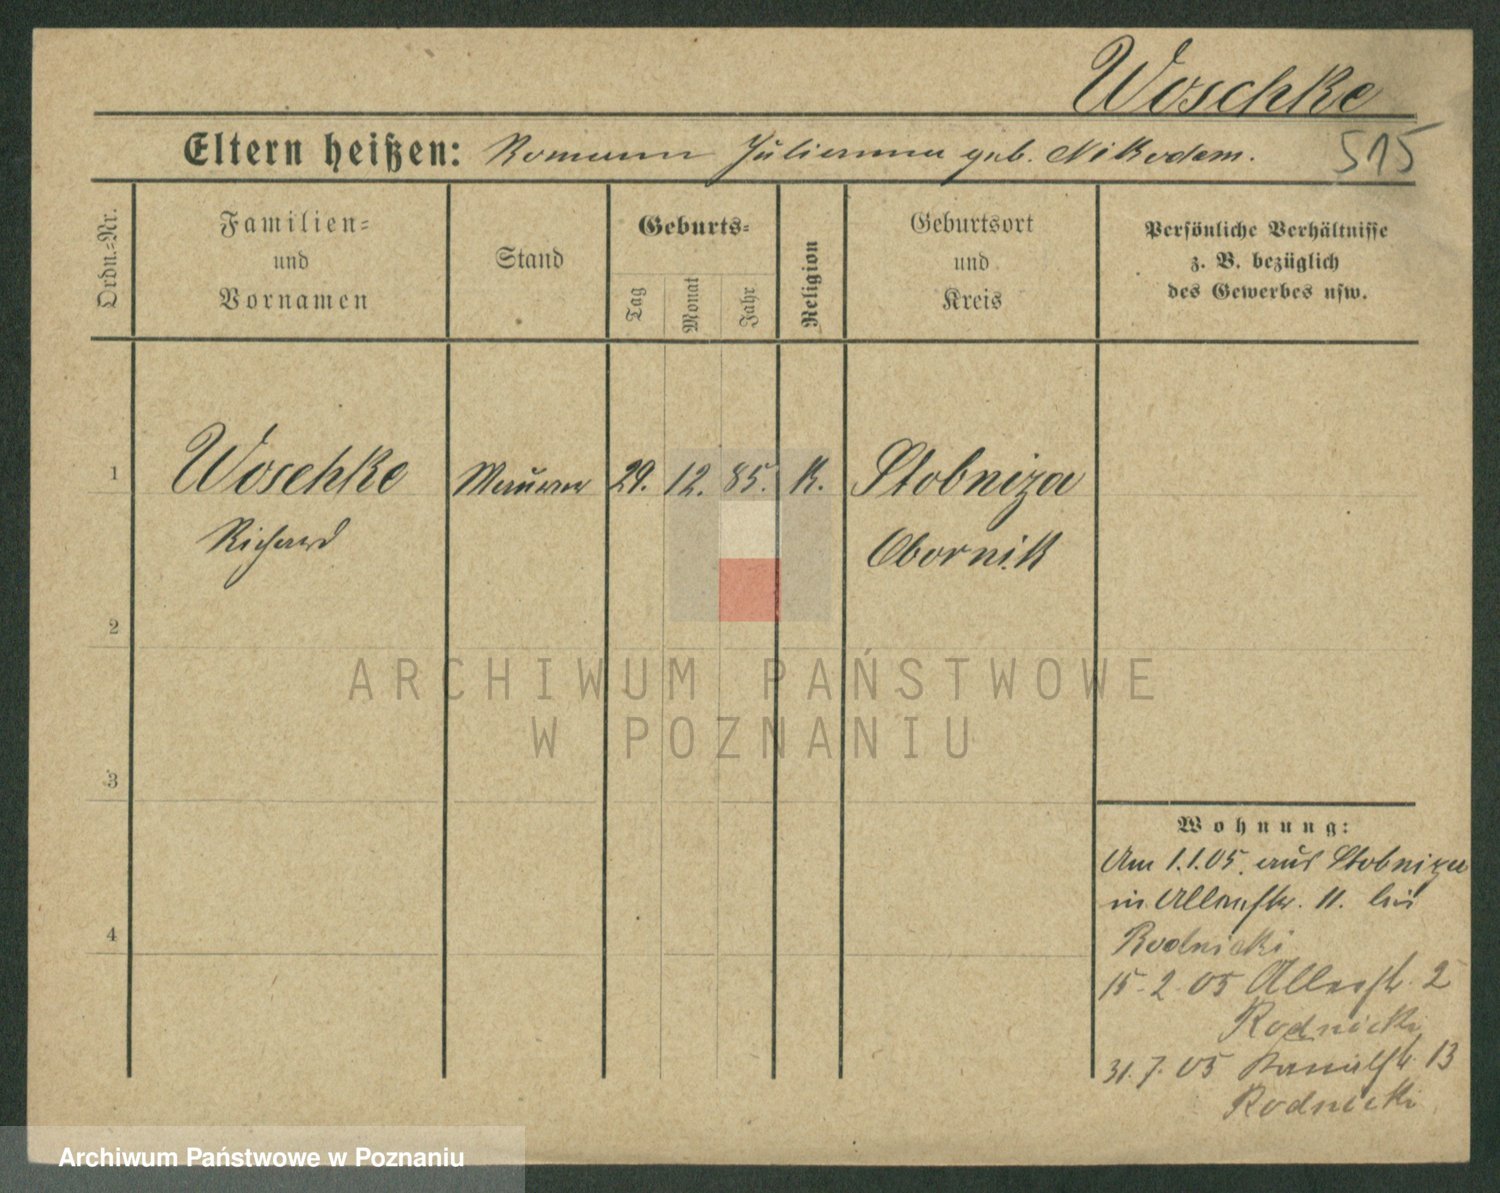 Woschke
515
Eltern heißen: Romann Julianna geb. Nikodem.
Ordn.-Nr.
Familien-
und
Vornamen
Stand
Geburts-
Tag
Monat
Jahr
Religion
Geburtsort
und
Kreis
Persönliche Verhältnisse
z. B. bezüglich
des Gewerbes usw.
1
Woschke
Maurer
29. 12. 85. K.
Stobniza
Richard
Obornik
2
3
4
Wohnung:
Am 1.1.05. aus Stobniza
in Allerstr. 11. bei
Rodnicki
15. 2. 05 Allerstr. 2
Rodnicki
31. 7. 05 Kanalstr. 13
Rodnicki
ARCHIWUM PAŃSTWOWE
W POZNANIU
Archiwum Państwowe w Poznaniu